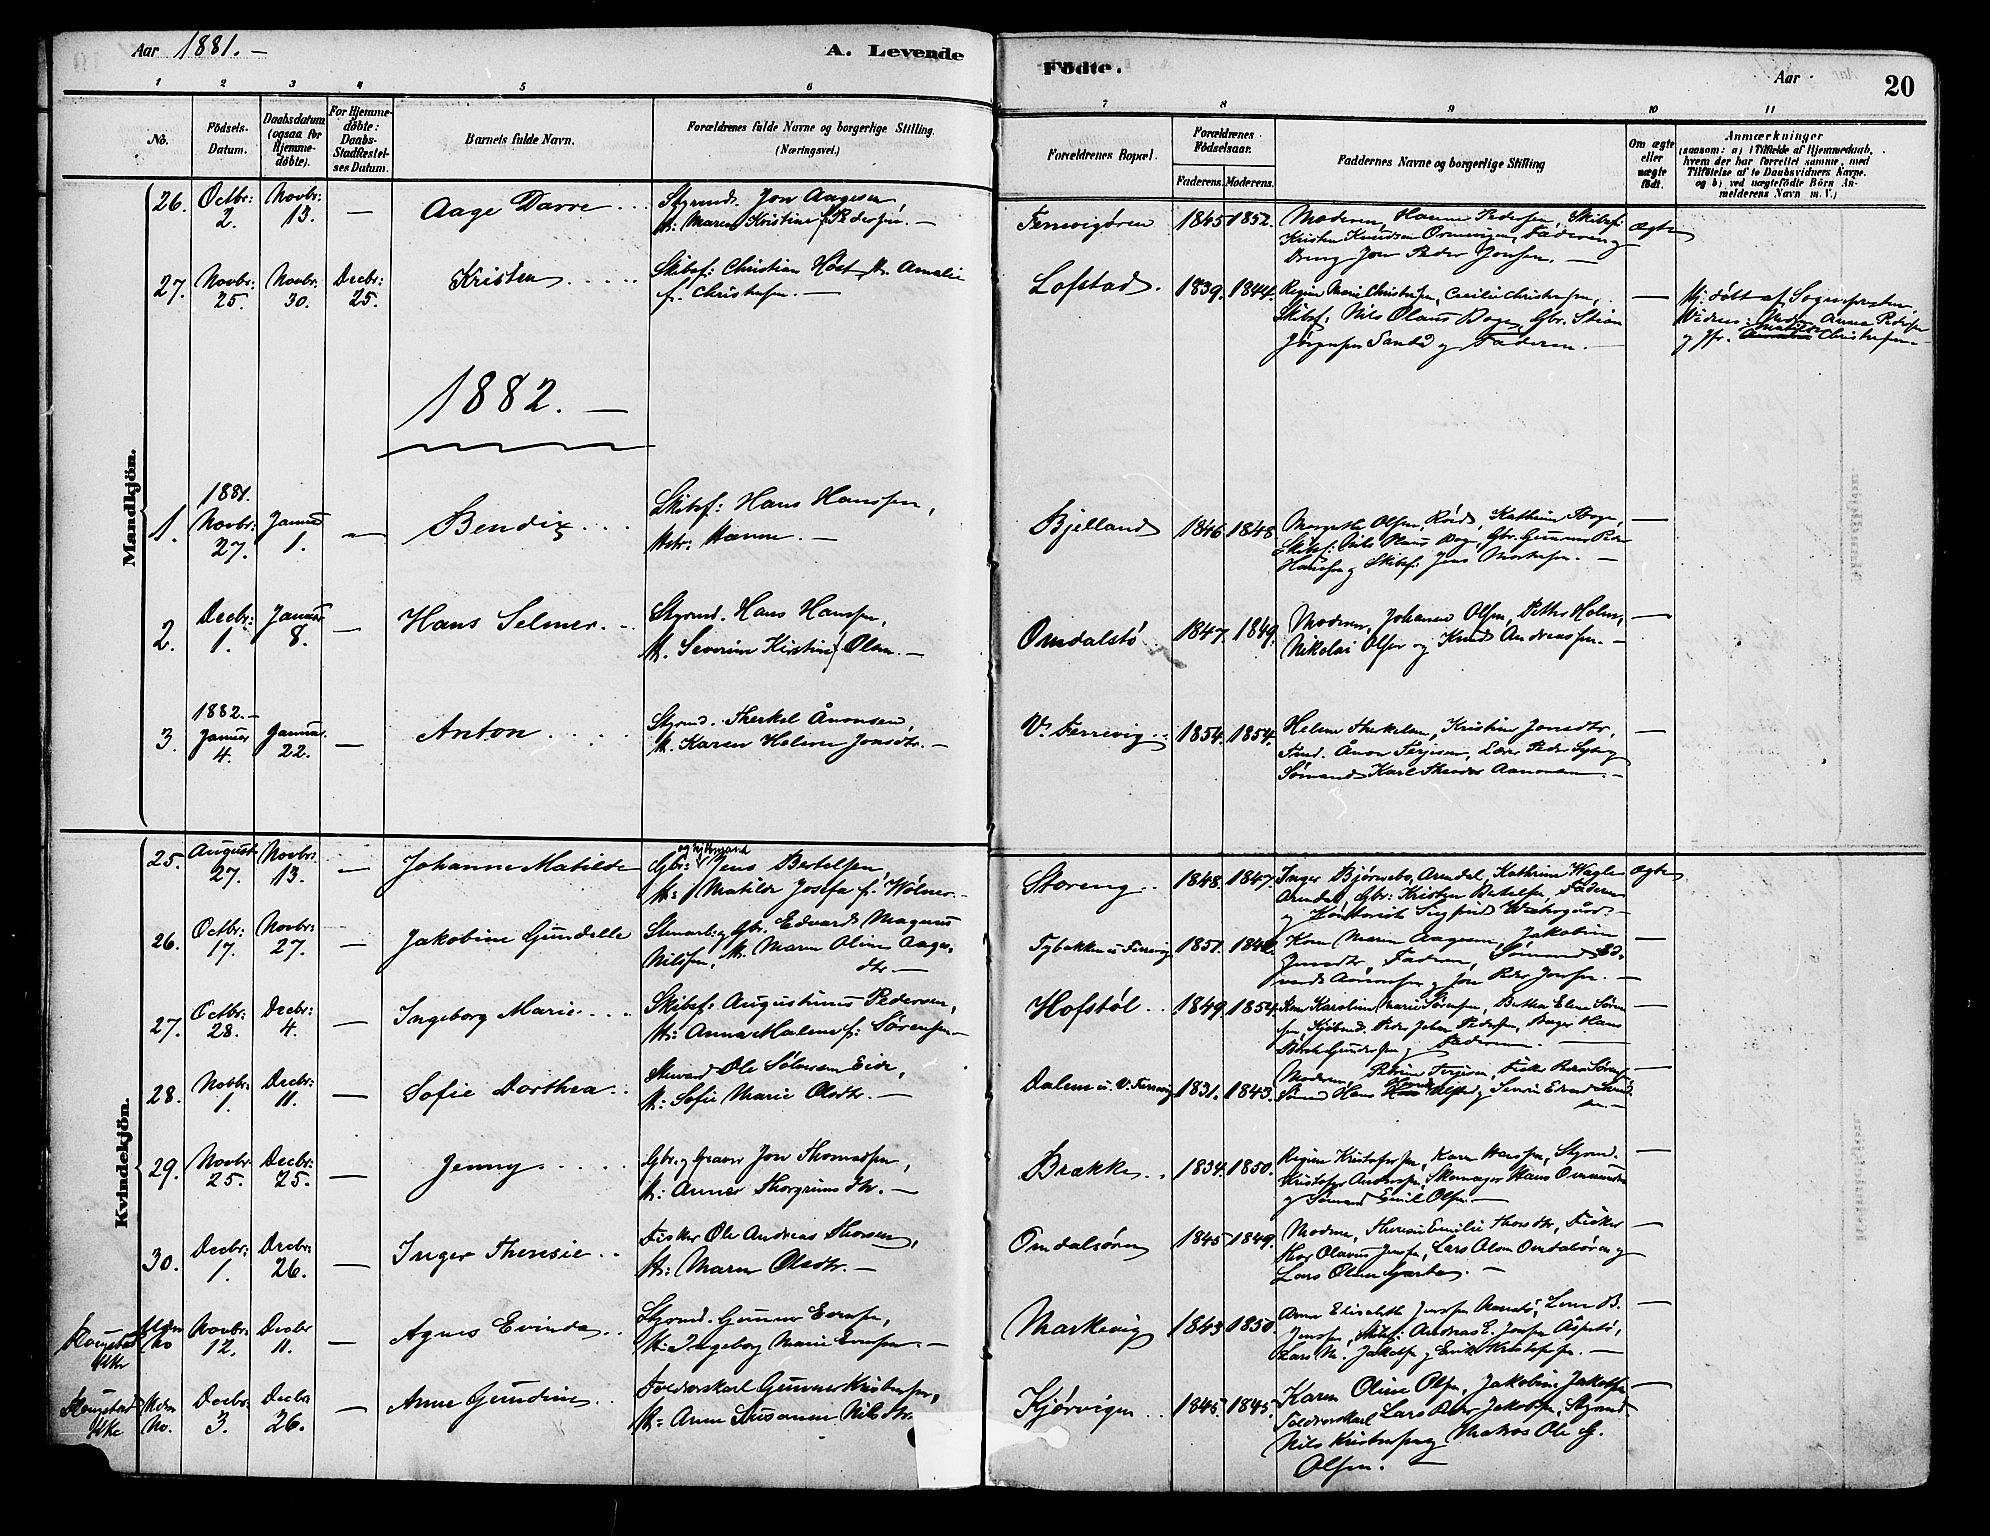 Aar 1881. —
A. Levende
Födte.
Aar
20
1 2 3 4 5 6
7 8 9 10 11
No.
Födsels-
Datum.
Daabsdatum
(ogsaa for
Hjemme-
döbte).
For Hjemme-
döbte:
Daabs-
Stadfæstel-
ses Datum.
Barnets fulde Navn.
Forældrenes fulde Navne og borgerlige Stilling.
(Næringsvei.)
Forældrenes Bopæl.
Forældrenes
Födselsaar.
Faderens. Moderens.
Faddernes Navne og borgerlige Stilling
Om ægte
eller
uægte
födt.
Anmærkninger
(saasom: a) i Tilfælde af Hjemmedaab,
hvem der har forrettet samme, med
Tilföielse af to Daabsvidners Navne.
og b) ved uægtefödte Börn An-
melderens Navn m. V.)
Mandkjön.
26. Octbr: 2. Novbr: 13. — Aage Darre
Styrmd. Jon Aagesen
H: Maren Kristine f. Pedersen. —
Ferrevigören 1845 1852.
Moderen, Hanne Pedersen, Skibsf:
Kristen Knudsen Ormevigen, Faderen og
Dreng Jon Peder Jonsen. —
ægte
27. Novbr: 25. Novbr: 30. Decbr: 25. Kristen
Skibsf: Christian Höst H. Amalie
f. Christensen. —
Lofstad. 1839. 1844.
Regine Marie Christensen, Cecilie Christensen,
Skibsf. Nils Olaus Boge, Gbr. Stian
Jörgensen Sandö og Faderen. —
—
Hj. döbt af Sognepresten
Vidner: Madm Anna Pedersen
og Jfr. Amalie Mathilde Christensen —
1882. —
1. 1881. Novbr: 27. Januar 1. — Bendix
Skibsf: Hans Hanssen,
Hstr: Hanne. —
Bjelland 1846 1848
Margrethe Olsen, Röed, Kathrine Boge,
Skibsf: Nils Olaus Boge, Gbr. Gunner Peder
Hanssen og Skibsf: Jens Mortensen. —
—
2. Decbr: 1. Januar 8. — Hans Selmer.
Styrmd. Hans Hanssen,
H. Severine Kirstine Olsen. —
Omdalstö 1847. 1849.
Moderen, Johanne Olsen, Petter Holm,
Nikolai Olsen og Knud Andreassen. —
—
3. 1882. — Januar 4. Januar 22. — Anton
Styrmd. Therkel Ånonsen,
H. Karen Helene Jonsdtr. —
V. Ferrevig 1854. 1854.
Helene Therkelsen, Kristine Jonsdtr,
Tmd. Ånon Terjesen, Lærer Peder
Sömand Karl Theodor Aanonsen. —
—
Kvindekjön.
25. August 27. Novbr: 13. — Johanne Matilde
Gbr: Jens Bertelsen,
H: Matilde Josefa f. Wölner. —
Storeng. 1848. 1847.
Inger Björnebo, Arendal, Kathrine Wagle
Arendal, Gbr: Kristen Bertelsen, Faderen
ægte
26. Octbr: 17. Novbr: 27. — Jakobine Gundelle
Gbr. Edvard Magnus
Nilssen, H. Maren Oline Aages-
dtr —
Tybakken u. Ferrevig 1851.
Kone Maren Aagesen, Jakobine
Jonsdtr, Faderen, Sömand Ed-
vard Aanonsen og Jon Peder Jonsen. —
—
27. Octbr: 28. Decbr: 4. — Ingeborg Marie
Skibsf: Augustinus Pedersen,
H: Anna Malene f. Sörensen —
Hofstöl. 1849. 1854.
Karoline Marie Sörensen, Betha Elene Sören-
sen, Kjöbmd. Peder Johan Pedersen, Bager Hans
Gundersen og Faderen. —
—
28. Novbr: 1. Decbr: 11. — Sofie Dorthea
Steward Ole Sölvesen Eide,
H: Sofie Marie Olsdtr. —
Dalene u. V. Ferrevig 1831. 1843.
29. Novbr: 25. Decbr: 25. — Jenny
Gbr. og Graver Jon Thomassen,
H: Anne Thorgrimsdtr. —
Brække 1834. 1850.
Regine Kristofersen, Karen Hansen, Styrmd.
Kristofer Andersen, Skomager Hans Omundsen
og Sömand Emil Olsen. —
—
30. Decbr: 1. Decbr: 26. — Inger Theresie
Fisker Ole Andreas Thorsen,
H: Maren Olsdtr. —
Omdalsören 1845 1849.
Moderen, Therese Emilie Thorsdtr, Fisker
Thor Olavus Jensen, Lars Olsen Omdalsören og
Lars Olsen
—
Novbr: 12. Decbr 11. — Agnes Evinda
Styrmd. Gunner Evensen,
H: Ingeborg Marie Evensen. —
Markevig 1843 1850.
Anne Elisabeth Jensen Lene B.
Jensen, Skibsf: Andreas E. Jensen Aspetö,
Lars M. Jakobsen og Emil Kristofersen. —
—
Decbr: 3. Decbr 26. — Anne Gundine
Toldorskarl Gunner Kristensen,
H: Anne Susanne Nilsdtr.
Kjörvigen 1845. 1845.
Karen Oline Olsen, Jakobine Jakobsen
Toldorskarl Lars Peder Jakobsen, Styrmd.
Nils Kristensen og Matros Ole G.
Olsen. —
—